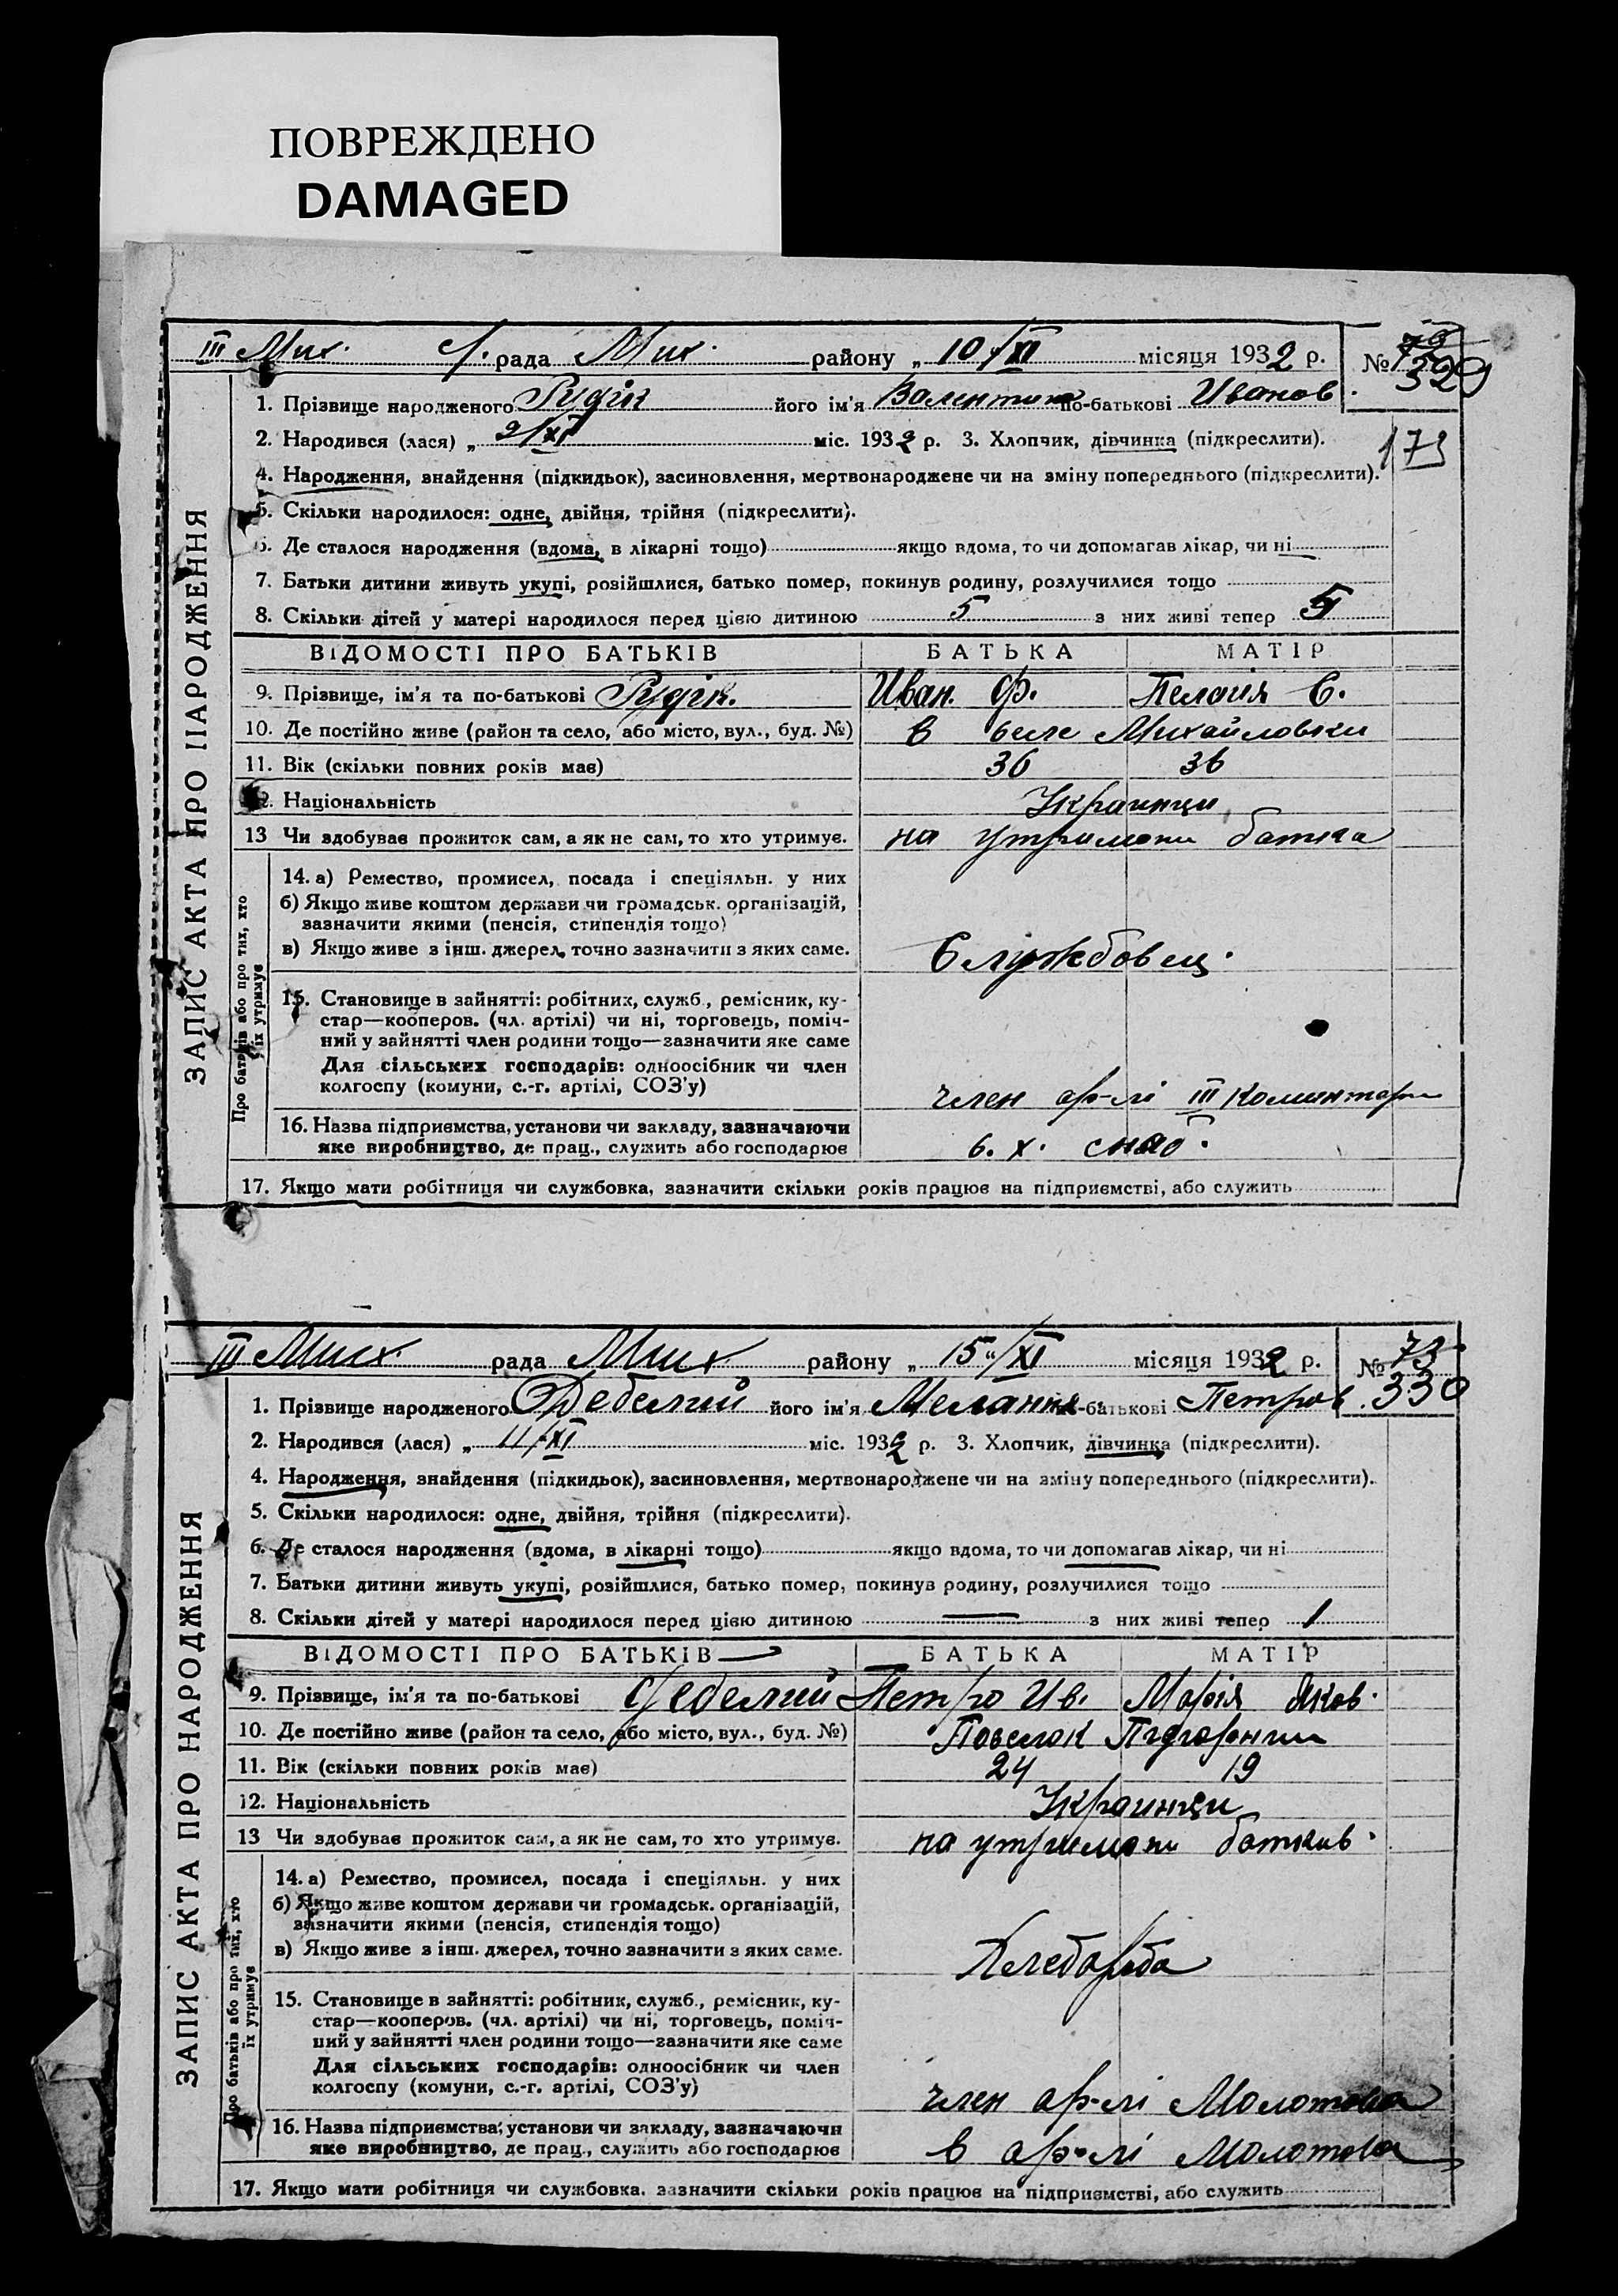 ПОВРЕЖДЕНО
DAMAGED
III Мих. с/. рада Мих. району „ 10/XI місяця 1932 р. №
329
1. Прізвище народженого Рудік його ім'я Валентина по-батькові Иванов.
2. Народився (лася) „ 2/XI міс. 1932 р. 3. Хлопчик, дівчинка (підкреслити).
173
4. Народження, знайдення (підкидьок), засиновлення, мертвонароджене чи на зміну попереднього (підкреслити).
5. Скільки народилося: одне, двійня, трійня (підкреслити).
6. Де сталося народження (вдома, в лікарні тощо) якщо вдома, то чи допомагав лікар, чи ні
7. Батьки дитини живуть укупі, розійшлися, батько помер, покинув родину, розлучилися тощо
8. Скільки дітей у матері народилося перед цією дитиною 5 з них живі тепер 5
ВІДОМОСТІ ПРО БАТЬКІВ БАТЬКА МАТІР
9. Прізвище, ім'я та по-батькові Рудік. Иван. Ф. Пелагія Є.
10. Де постійно живе (район та село, або місто, вул., буд. №) в селе Михайловки
11. Вік (скільки повних років має) 36 36
12. Національність Украинци
13 Чи здобував прожиток сам, а як не сам, то хто утримує. на утримани батька
14. а) Ремество, промисел, посада і спеціяльн. у них
б) Якщо живе коштом держави чи громадськ. організацій,
зазначити якими (пенсія, стипендія тощо)
в) Якщо живе з інш. джерел, точно зазначити з яких саме. Службовец.
15. Становище в зайнятті: робітник, служб., ремісник, ку-
стар—кооперов. (чл. артілі) чи ні, торговець, поміч-
ний у зайнятті член родини тощо—зазначити яке саме
Для сільських господарів: одноосібник чи член
колгоспу (комуни, с.-г. артілі, СОЗ'у) член ар-лі III Коминтерн
16. Назва підприємства, установи чи закладу, зазначаючи
яке виробництво, де прац., служить або господарює
17. Якщо мати робітниця чи службовка, зазначити скільки років працює на підприємстві, або служить
ЗАПИС АКТА ПРО НАРОДЖЕННЯ
Про батьків або про тих, хто
їх утримує
III Мих. рада Мих. району „ 15"/XI місяця 1932 р. № 73
330
1. Прізвище народженого Дебелий його ім'я Меланія по-батькові Петров.
2. Народився (лася) „ 11/XI міс. 1932 р. 3. Хлопчик, дівчинка (підкреслити).
4. Народження, знайдення (підкидьок), засиновлення, мертвонароджене чи на зміну попереднього (підкреслити).
5. Скільки народилося: одне, двійня, трійня (підкреслити).
6. Де сталося народження (вдома, в лікарні тощо) якщо вдома, то чи допомагав лікар, чи ні
7. Батьки дитини живуть укупі, розійшлися, батько помер, покинув родину, розлучилися тощо
8. Скільки дітей у матері народилося перед цією дитиною — з них живі тепер 1
ВІДОМОСТІ ПРО БАТЬКІВ БАТЬКА МАТІР
9. Прізвище, ім'я та по-батькові Дебелий Петро Ив. Марія Яков.
10. Де постійно живе (район та село, або місто, вул., буд. №) Поселок
11. Вік (скільки повних років має) 24 19
12. Національність Украинци
13 Чи здобував прожиток сам, а як не сам, то хто утримує. на утримани батьків.
14. а) Ремество, промисел, посада і спеціяльн. у них
б) Якщо живе коштом держави чи громадськ. організацій,
зазначити якими (пенсія, стипендія тощо)
в) Якщо живе з інш. джерел, точно зазначити з яких саме. Хлебороба
15. Становище в зайнятті: робітник, служб., ремісник, ку-
стар—кооперов. (чл. артілі) чи ні, торговець, поміч-
ний у зайнятті член родини тощо—зазначити яке саме
Для сільських господарів: одноосібник чи член
колгоспу (комуни, с.-г. артілі, СОЗ'у) член ар-лі Молотова
16. Назва підприємства, установи чи закладу, зазначаючи
яке виробництво, де прац., служить або господарює в ар-лі Молотова
17. Якщо мати робітниця чи службовка, зазначити скільки років працює на підприємстві, або служить
ЗАПИС АКТА ПРО НАРОДЖЕННЯ
Про батьків або про тих, хто
їх утримує